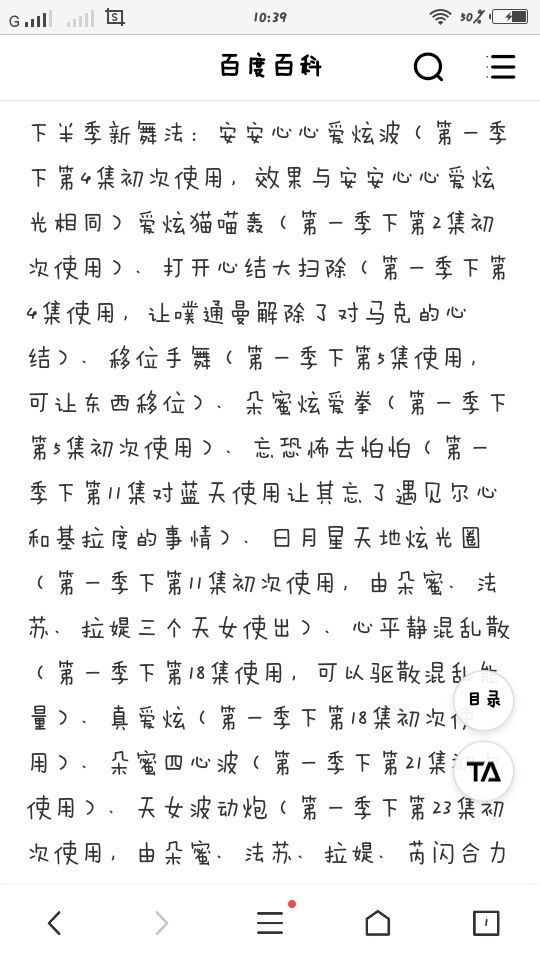 G 10:39 50%
百度百科
下半季新舞法：安安心心爱炫波（第一季
下第4集初次使用，效果与安安心心爱炫
光相同）爱炫猫喵轰（第一季下第2集初
次使用）、打开心结大扫除（第一季下第
4集使用，让噗通曼解除了对马克的心
结）、移位手舞（第一季下第5集使用，
可让东西移位）、朵蜜炫爱拳（第一季下
第5集初次使用）、忘恐怖去怕怕（第一
季下第11集对蓝天使用让其忘了遇见尔心
和基拉度的事情）、日月星天地炫光圈
（第一季下第11集初次使用，由朵蜜、法
苏、拉媞三个天女使出）、心平静混乱散
（第一季下第18集使用，可以驱散混乱能
量）、真爱炫（第一季下第18集初次使
用）、朵蜜四心波（第一季下第21集
使用）、天女波动炮（第一季下第23集初
次使用，由朵蜜、法苏、拉媞、芮闪合力
目录
TA
1